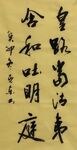 皇路当清夷
含和吐明庭